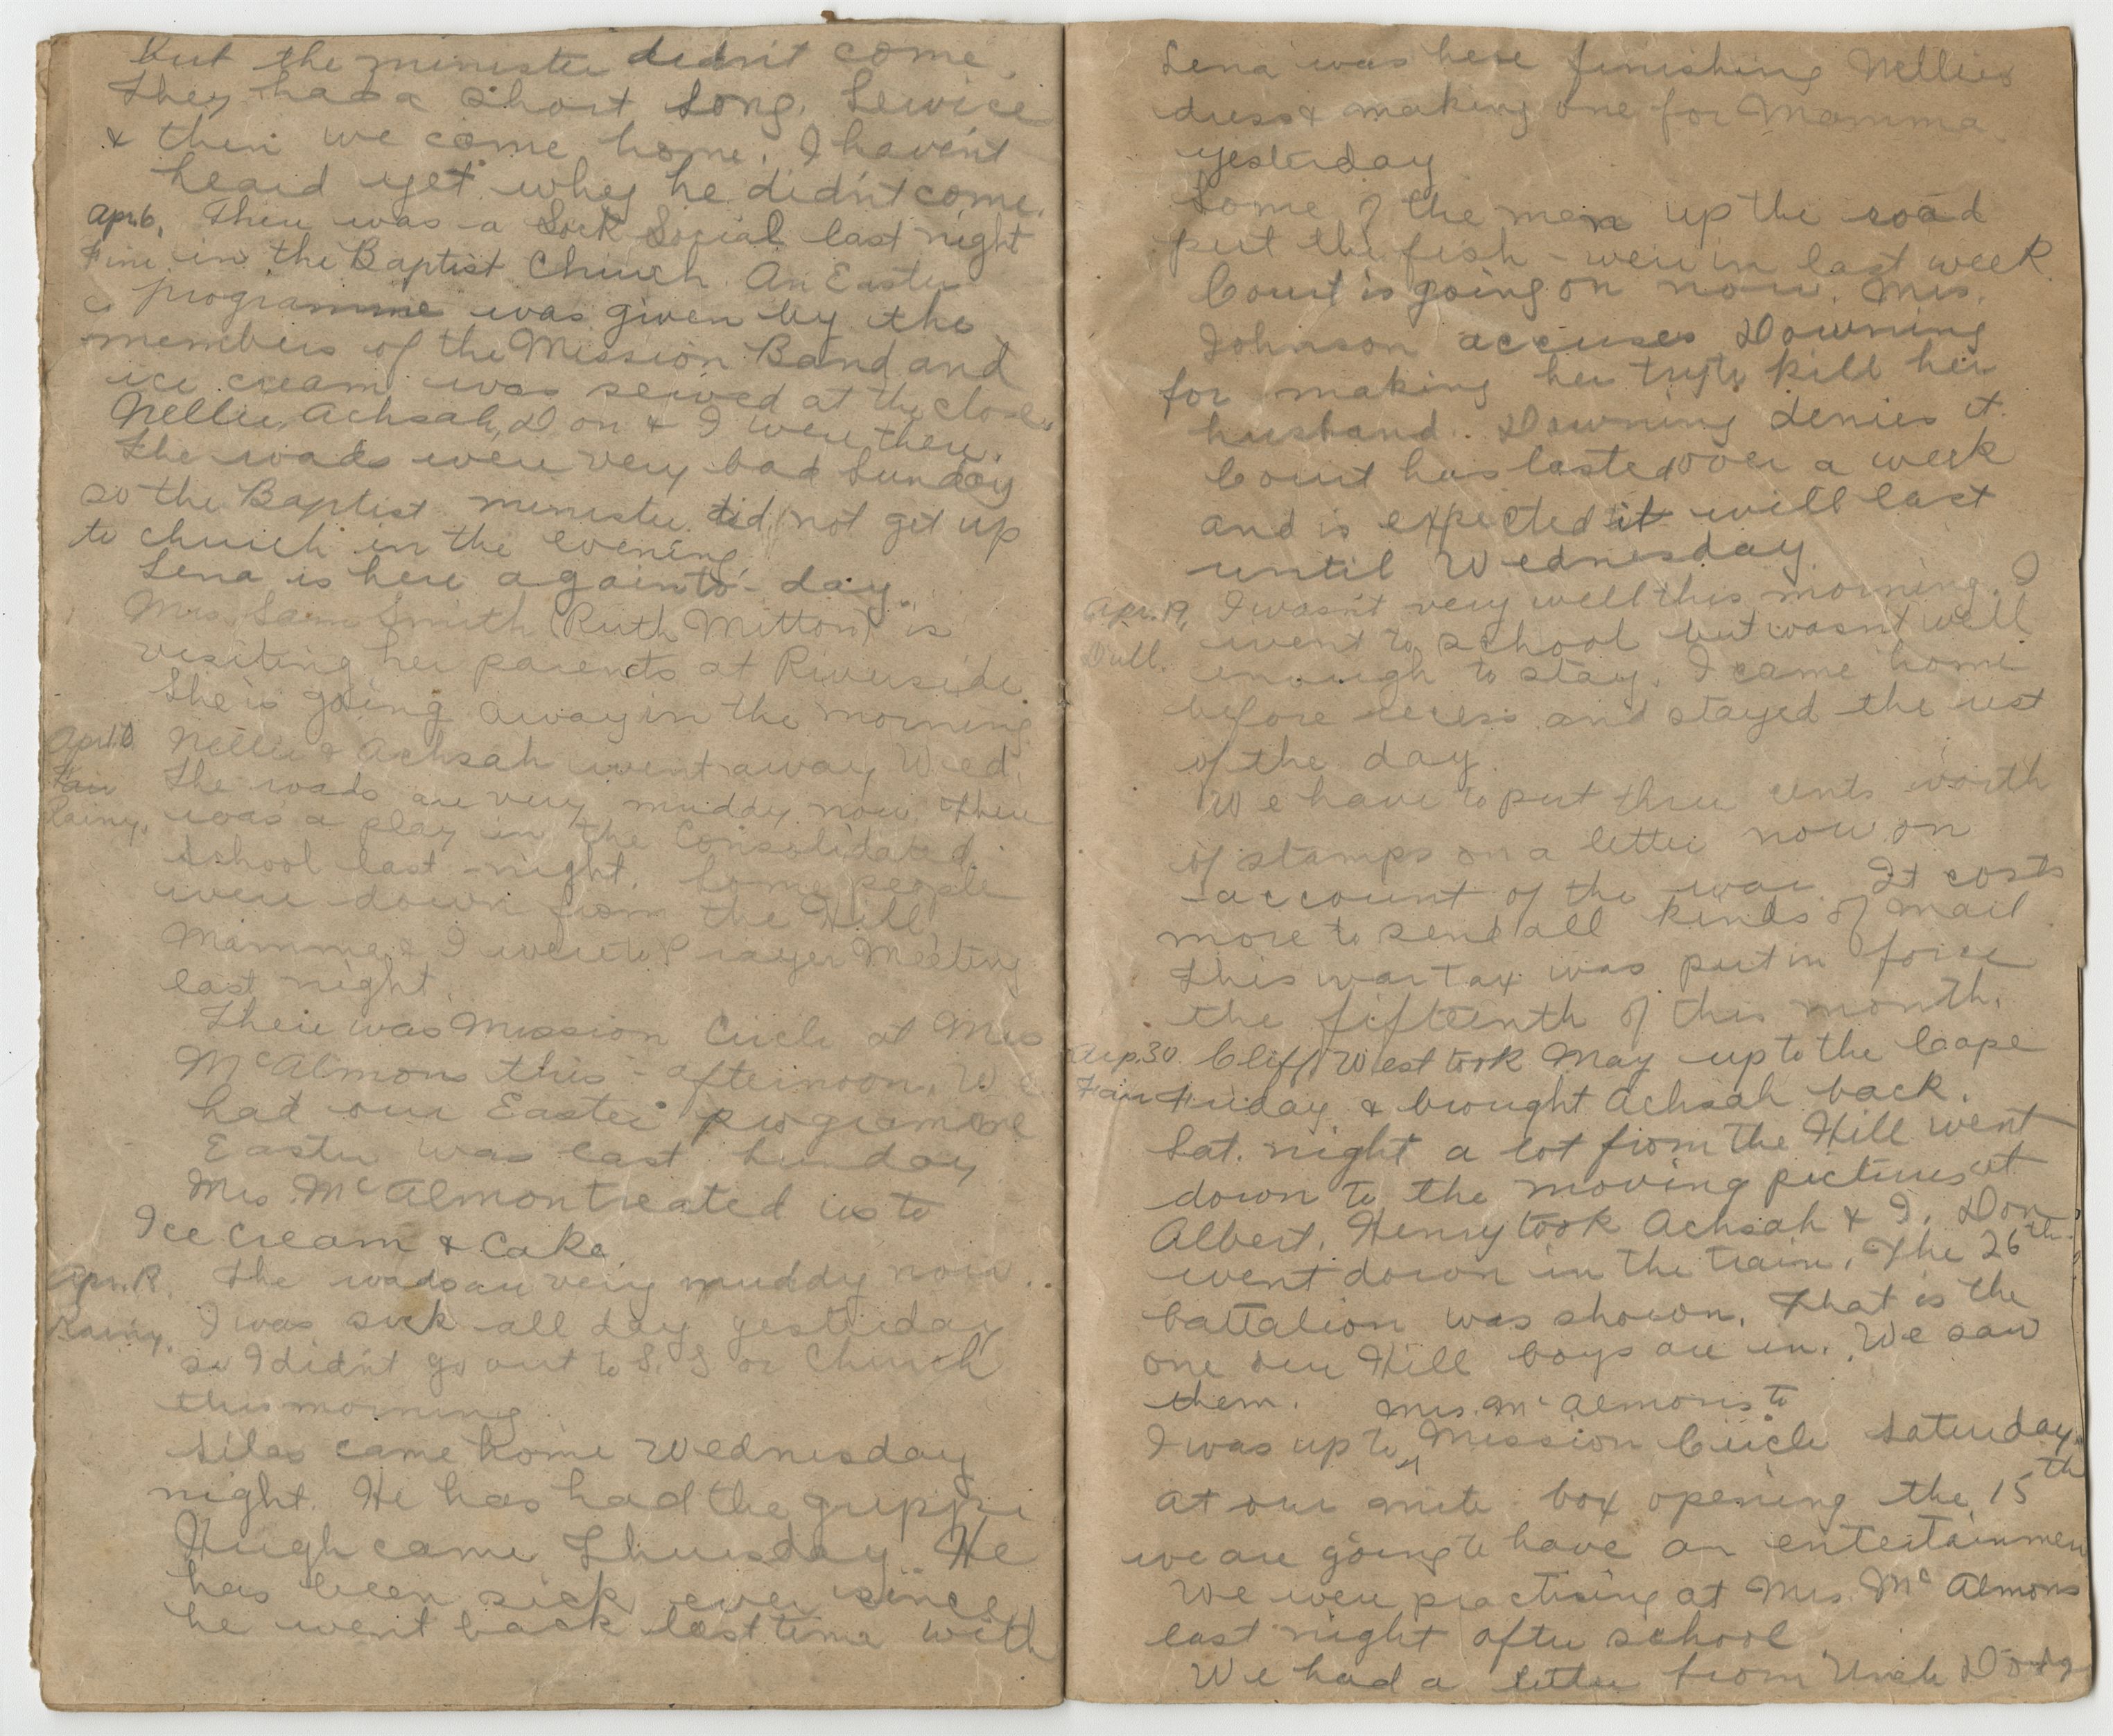 but the minister didn't come.
They had a short Song. Service
& then we come home. I haven't
heard yet why he didn't come.
Apr. 6. There was a Sock Social last night
Fine in the Baptist Church. An Easter
programme was given by the
members of the Mission Band and
ice cream was served at the close.
Nellie, Achsah, Don & I were there.
The roads were very bad Sunday
so the Baptist minister did not get up
to church in the evening.
Lena is here again to-day.
Mrs. Sam Smith (Ruth Mitton) is
visiting her parents at Riverside.
She is going away in the morning
Apr. 10 Nellie & Achsah went away Wed.
Fair The roads are very muddy now. There
Rainy. was a play in the Consolidated
school last-night. Some people
were down from the Hill.
Mamma & I were to Prayer Meeting
last night.
There was Mission Circle at Mrs
McAlmons this-afternoon. We
had our Easter programme
Easter was last Sunday
Mrs. McAlmon treated us to
Ice Cream & Cake
Apr. 18. The roads are very muddy now..
Rainy. I was sick all day yesterday
so I didn't go out to S.S or Church
this morning.
Silas came home Wednesday
night. He has had the grippe
Hugh came Thursday. He
has been sick ever since
he went back last time with
Lena was here finishing Nellies
dress & making one for Mamma.
yesterday
Some of the men up the road
put the fish-weir in last week.
Court is going on now. Mrs.
Johnson accuses Downing
for making her try to kill her
husband. Downing denies it.
Court has lasted over a week
and is expected it will last
until Wednesday.
Apr. 19, I wasn't very well this morning. I
Dull. went to school but wasn't well
enough to stay. I came home
before recess and stayed the rest
of the day.
We have to put three cents worth
of stamps on a letter now on
account of the war. It costs
more to send all kinds of mail
This war tax was put in force
the fifteenth of this month.
Arp. 30. Cliff West took May up to the Cape
Fair Friday & brought Achsah back.
Sat. night a lot from the Hill went
down to the moving pictures at
Albert. Henry took Achsah & I. Don
went down in the train. The 26th
battalion was shown. That is the
one our Hill boys are in. We saw
them. Mrs. McAlmons to
I was up to Mission Circle Saturday.
at our mite box opening the 15th
we are going to have an entertainmen
We were practising at Mrs. McAlmons
last night after school
We had a letter from Uncle